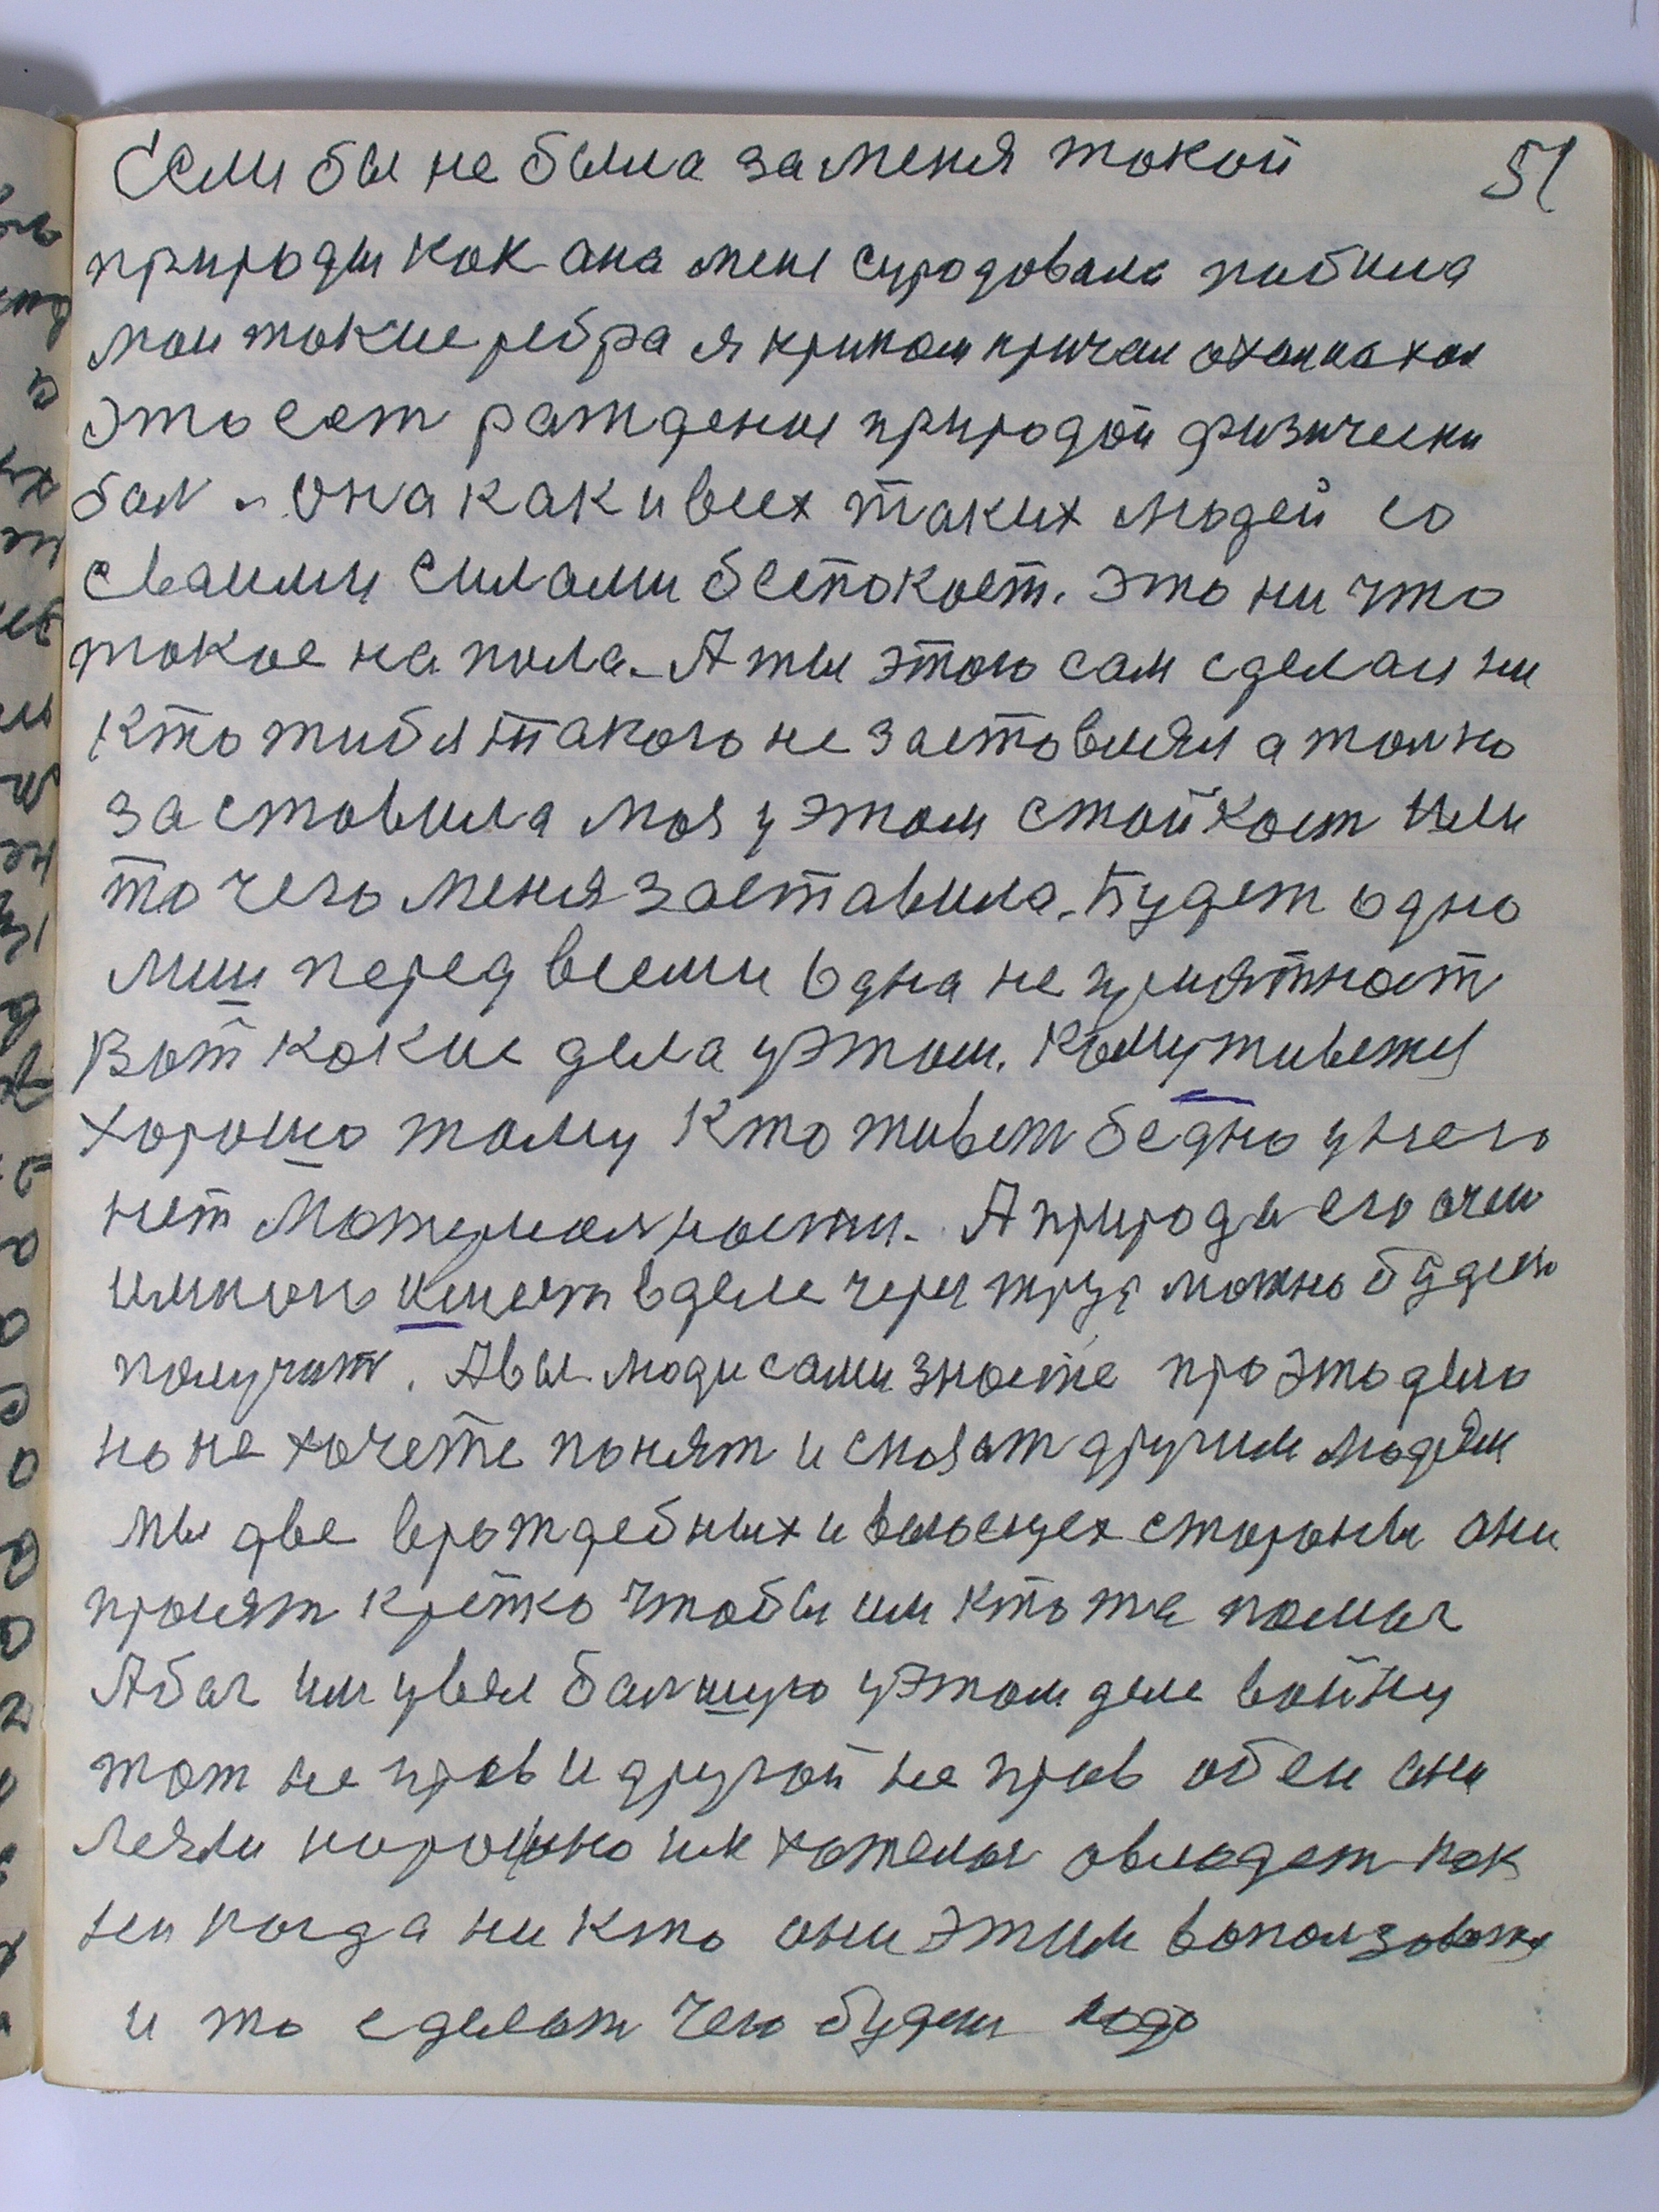 Если бы не была за меня такой 51
природы как ана мене суродовала побила
мои такие ребра я криком кричал охал ахал
Это ест рождение природой физически
бал. Она как и всех таких людей со
сваими силами беспокоет. Это ни что
такое напола. А ты этого сам сделал ни
кто тибя такого не заставлял а толко
заставила моя у этом стойкост или
то чего меня заставила. Будет одно
мш перед всеми одна не приятност
Вот какие дела у этом. Кому живетця
хорошо тому кто живет бедно у него
нет материалности. А природа его очен
имноп имеет в деле через труд можно будет
получит. А вы люди сами знаете про это дело
но не хочете понят и сказат другим людям
мы две враждебных и воюещех стороны они
просят крепко чтобы им кто же помог
А бог им увял балшую у этом деле войну
тот не прав и другой не прав обеи они
легли нарошно им хателос овладет как
неи когда ни кто они этим воползоватя
и то сделат чего будеш надо